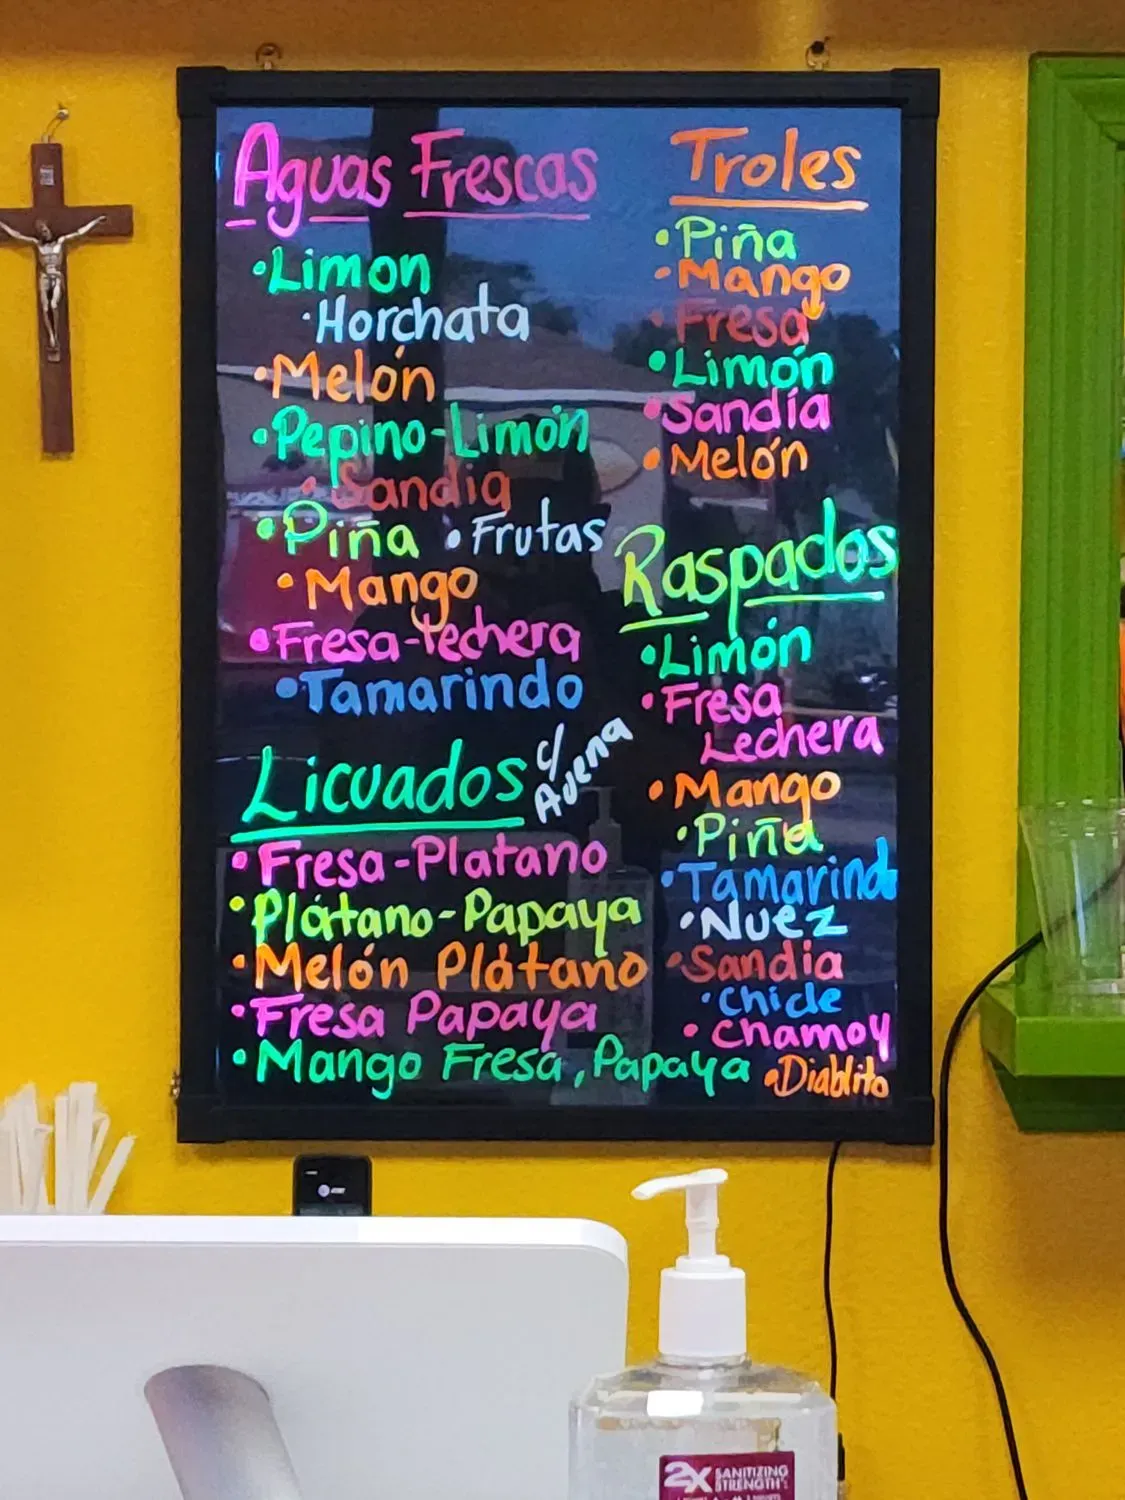 Aguas Frescas
•Limon
·Horchata
•Melón
•Pepino-Limón
•Sandia
•Piña •Frutas
•Mango
•Fresa-lechera
•Tamarindo
Licuados c/ Avena
•Fresa-Platano
•Plátano-Papaya
•Melón Plátano
•Fresa Papaya
•Mango Fresa, Papaya
Troles
•Piña
•Mango
•Fresa
•Limón
•Sandía
•Melón
Raspados
•Limón
•Fresa
Lechera
•Mango
•Piña
•Tamarindo
•Nuez
•Sandia
•Chicle
•Chamoy
•Diablito
AT&T
2X SANITIZING
STRENGTH